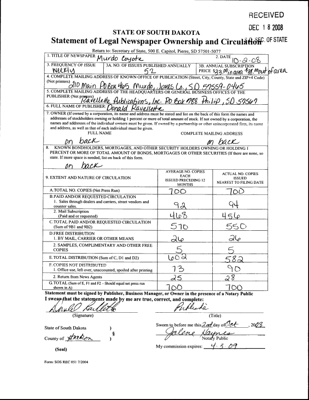 RECEIVED
DEC 18 2008
STATE OF SOUTH DAKOTA
Statement of Legal Newspaper Ownership and Circulation
OF STATE
Return to: Secretary of State, 500 E. Capitol, Pierre, SD 57501-5077
1. TITLE OF NEWSPAPER Murdo Coyote
2. DATE 10-2-08
3. FREQUENCY OF ISSUE Weekly
3A. NO. OF ISSUES PUBLISHED ANNUALLY 52
3B. ANNUAL SUBSCRIPTION PRICE
4. COMPLETE MAILING ADDRESS OF KNOWN OFFICE OF PUBLICATION (Street, City, County, State and ZIP+4 Code) (Not printers)
Murdo, Jones Co., SD 57559-0465
5. COMPLETE MAILING ADDRESS OF THE HEADQUARTERS OR GENERAL BUSINESS OFFICES OF THE PUBLISHER (Not printers)
Ravellette Publications, Inc. PO Box 788 Philip, SD 57567
6. FULL NAME OF PUBLISHER: Donald Ravellette
7. OWNER (If owned by a corporation, its name and address must be stated and also on the back of this form the names and
addresses of stockholders owning or holding 1 percent or more of total amount of stock. If not owned by a corporation, the
names and addresses of the individual owners must be given. If owned by a partnership or other unincorporated firm, its name
and address, as well as that of each individual must be given.
FULL NAME
COMPLETE MAILING ADDRESS
on back
on back
8. KNOWN BONDHOLDERS, MORTGAGES, AND OTHER SECURITY HOLDERS OWNING OR HOLDING 1
PERCENT OR MORE OF TOTAL AMOUNT OF BONDS, MORTGAGES OR OTHER SECURITIES (If there are none, so
state. If more space is needed, list on back of this form.
on back
9. EXTENT AND NATURE OF CIRCULATION
AVERAGE NO. COPIES EACH ISSUED PRECEDING 12 MONTHS
ACTUAL NO. COPIES ISSUED NEAREST TO FILING DATE
A. TOTAL NO. COPIES (Net Press Run) 700 700
B. PAID AND/OR REQUESTED CIRCULATION
1. Sales through dealers and carriers, street vendors and counter sales. 92 94
2. Mail Subscriptions (Paid and or requested) 468 456
C. TOTAL PAID AND/OR REQUESTED CIRCULATION (Sum of 9B1 and 9B2) 570 550
D. FREE DISTRIBUTION
1. BY MAIL, CARRIER OR OTHER MEANS 26 26
2. SAMPLES, COMPLIMENTARY AND OTHER FREE COPIES 5 5
E. TOTAL DISTRIBUTION (Sum of C, D1 and D2) 602 582
F. COPIES NOT DISTRIBUTED
1. Office use, left over, unaccounted, spoiled after printing 73 90
2. Return from News Agents 25 28
G. TOTAL (Sum of E, F1 and F2 - Should equal net press run shown in A) 700 700
Statement must be signed by Publisher, Business Manager, or Owner in the presence of a Notary Public
I swear that the statements made by me are true, correct, and complete:
Publisher
(Signature)
(Title)
State of South Dakota )
Sworn to before me this 2nd day of Oct 2008
County of Haakon )
Notary Public
(Seal)
My commission expires 4-5-09
Form: SOS REC 051 7/2004